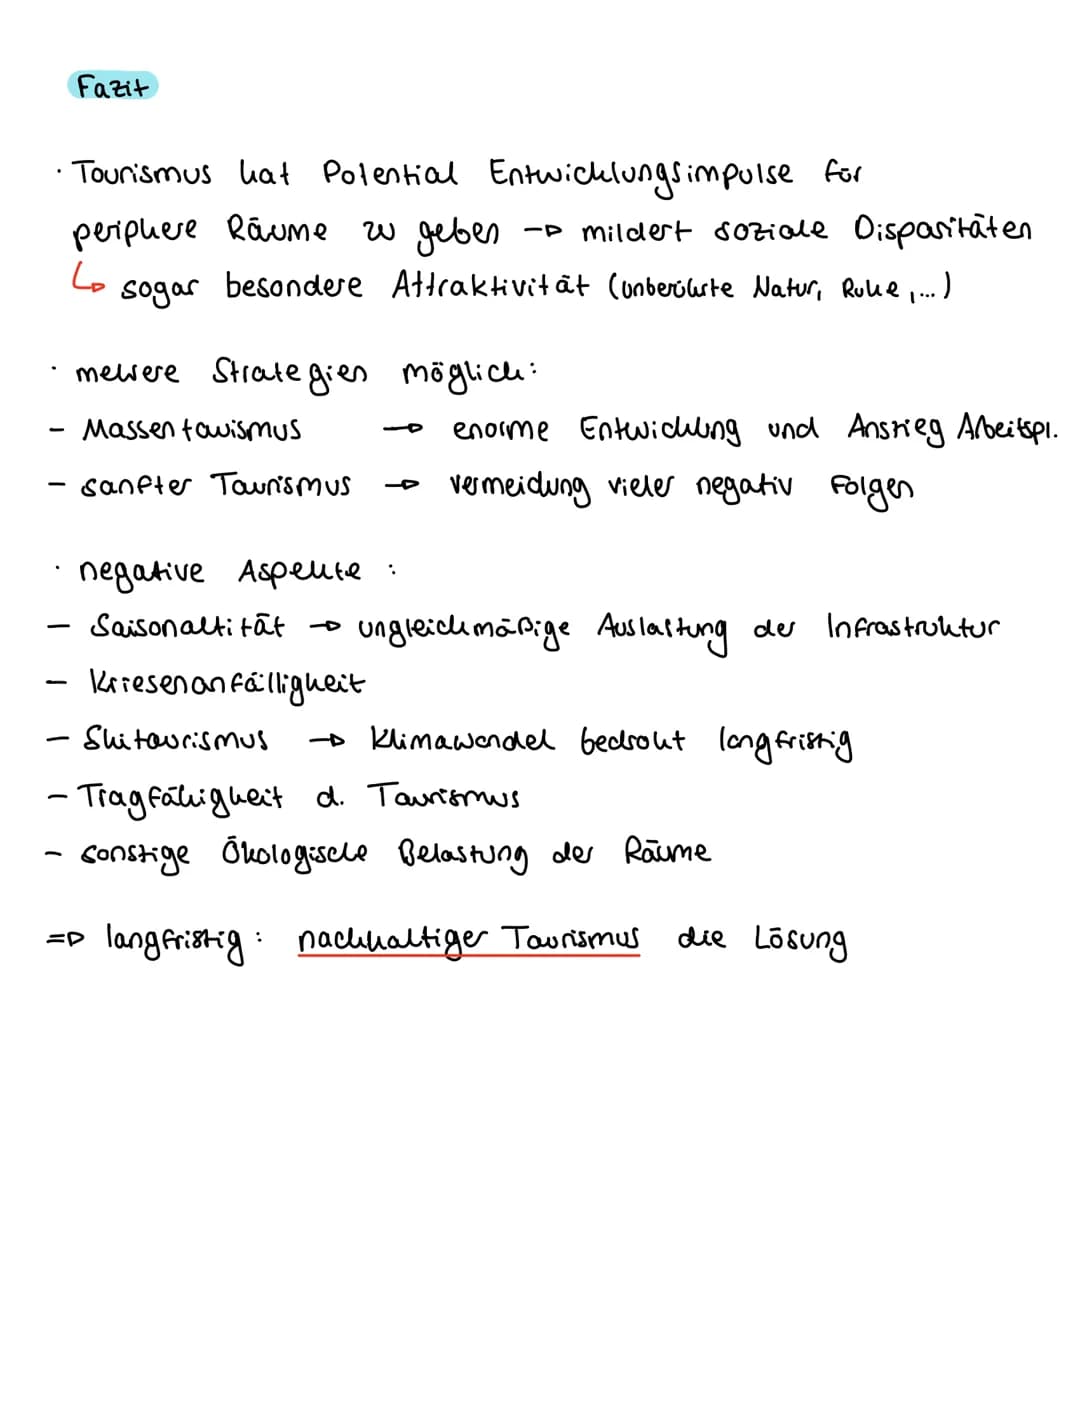 Fazit
· Tourismus hat Potential Entwicklungsimpulse für
periphere Räume zu geben → mildert soziale Disparitäten
↳ sogar besondere Attraktivität (unberührte Natur, Ruhe, ...)
· mehrere Strategien möglich:
- Massentourismus → enorme Entwicklung und Anstieg Arbeitspl.
- sanfter Tourismus → vermeidung vieler negativ Folgen
· negative Aspekte :
- Saisonaltität → ungleichmäßige Auslastung der Infrastruktur
- Kriesenanfälligkeit
- Skitourismus → Klimawandel bedroht langfristig
- Tragfähigkeit d. Tourismus
- sonstige Ökologische Belastung der Räume
⇒ langfristig: nachhaltiger Tourismus die Lösung